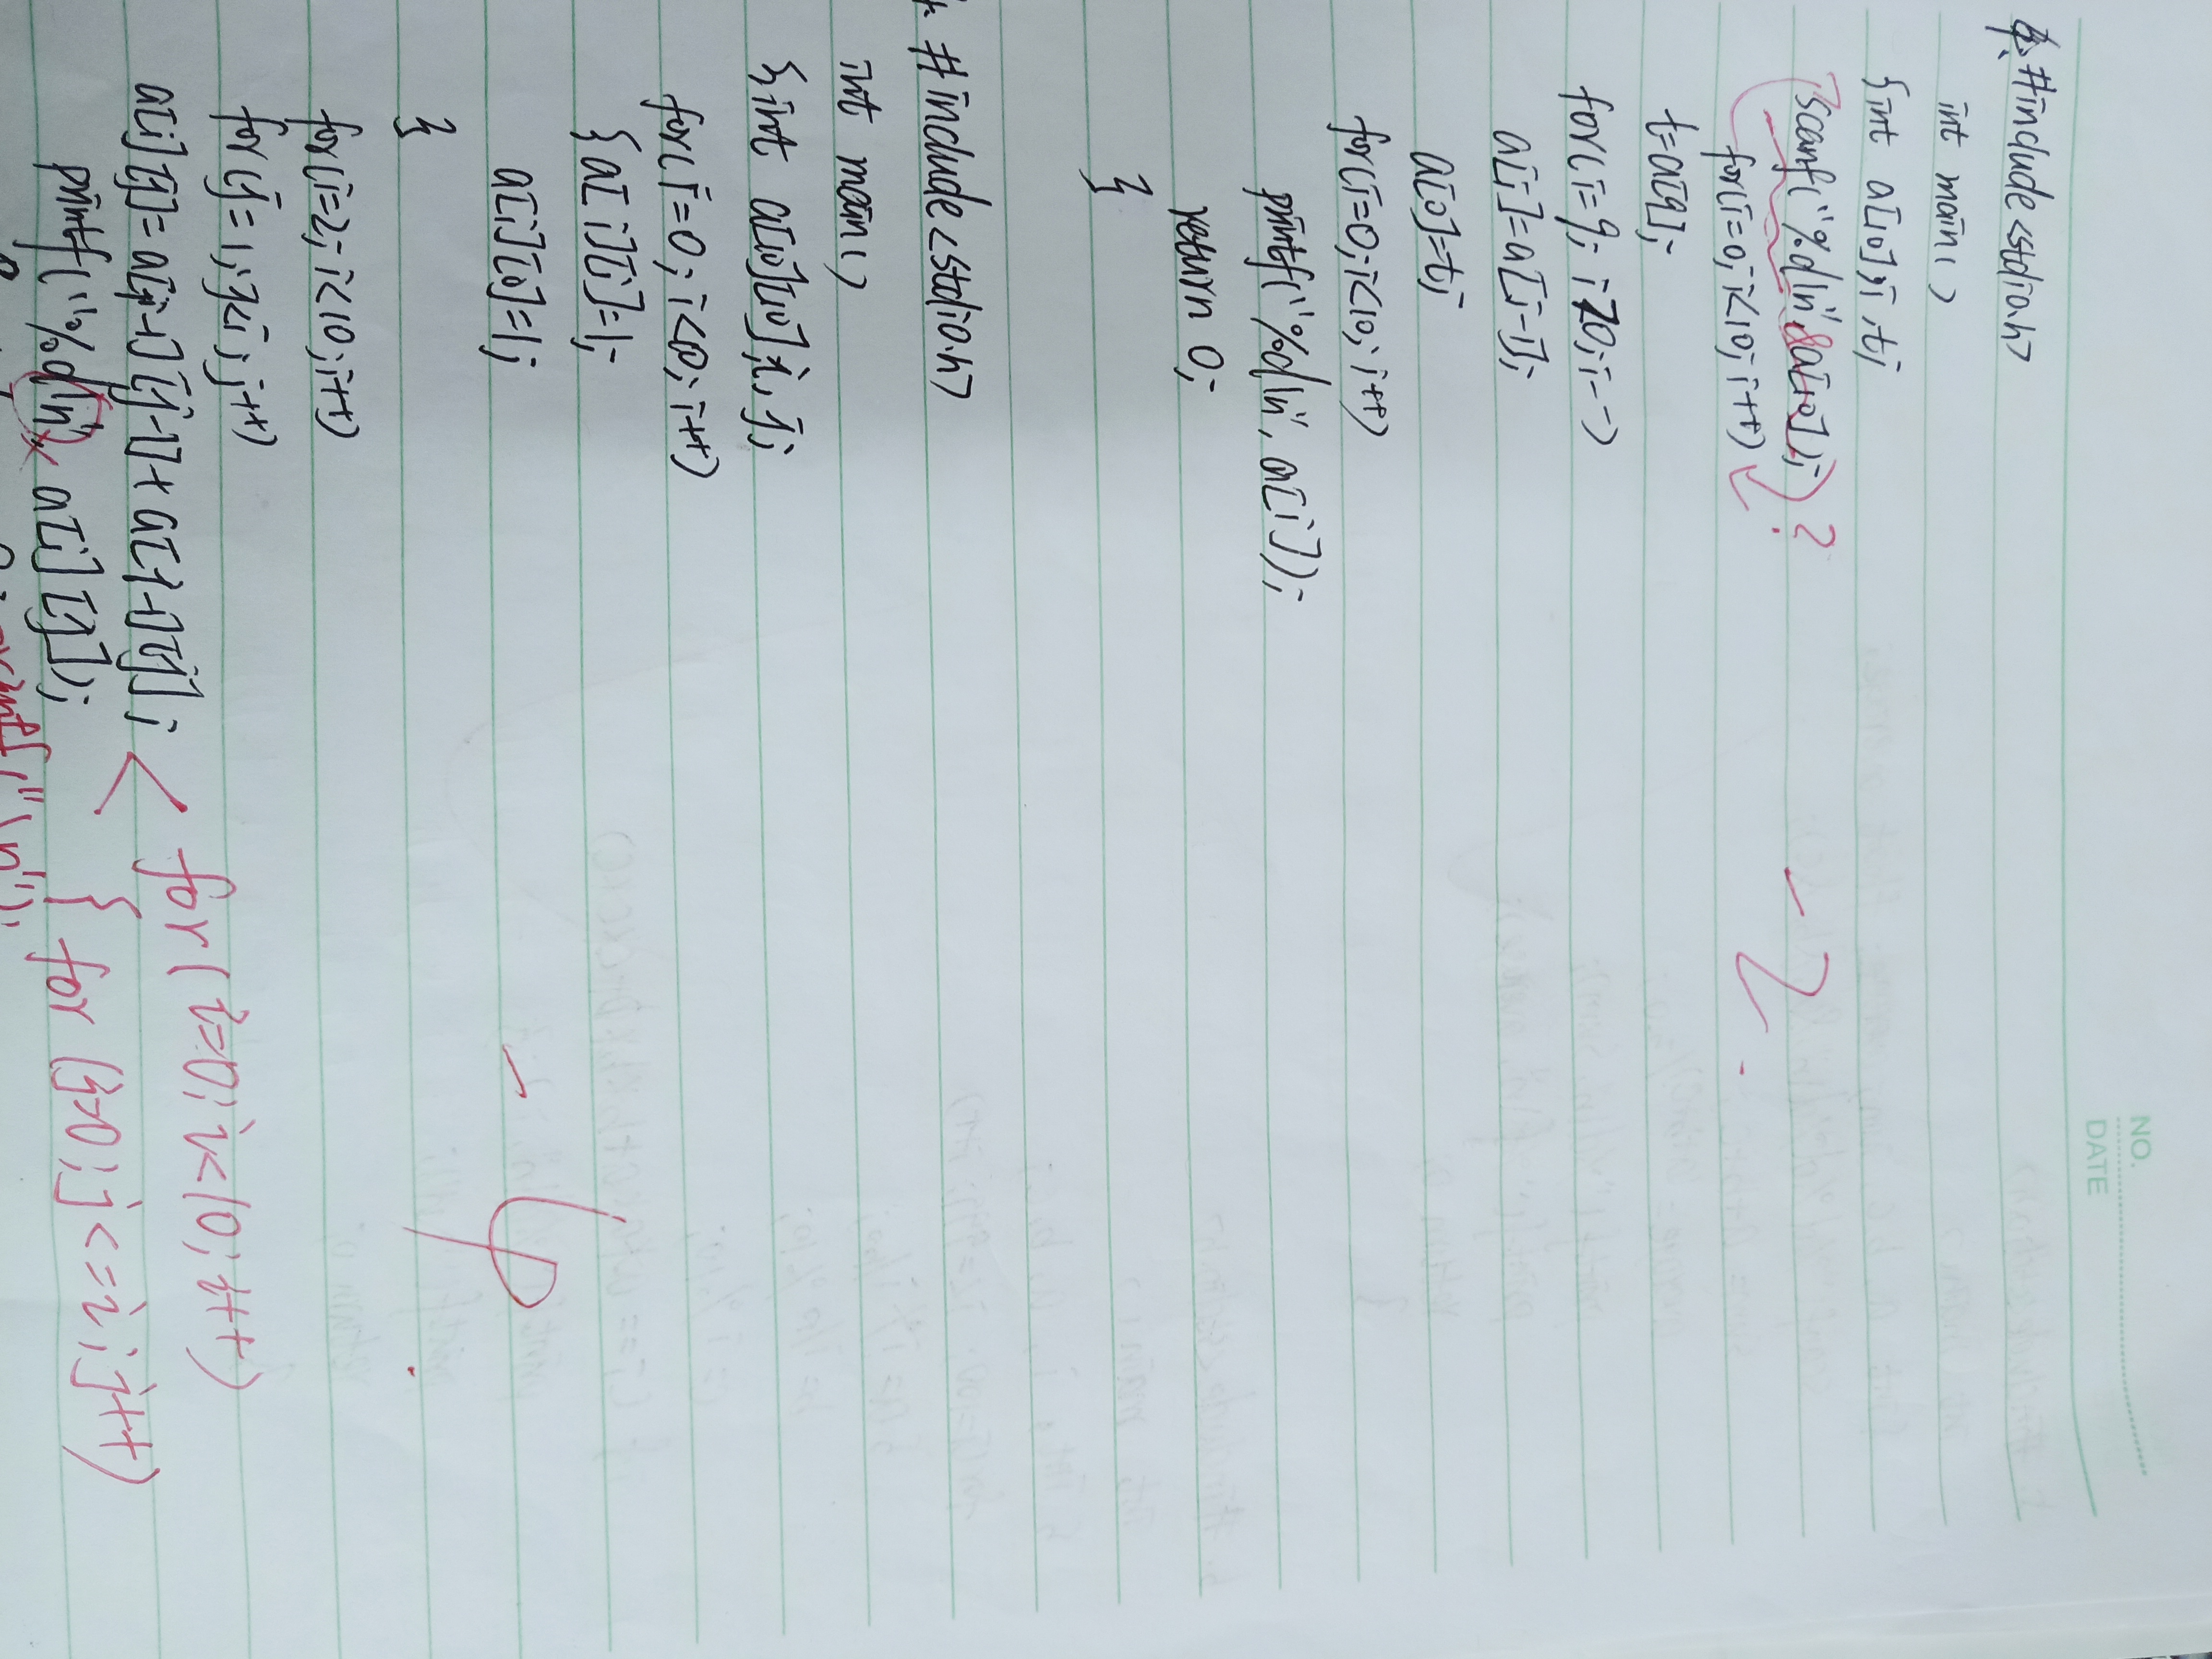 NO.
DATE
4. #include<stdio.h>
int main()
{int a[10],i,t;
(scanf("%d\n"&a[10]);)?
for(i=0;i<10;i++)
t=a[9];
for(i=9;i>0;i--)
a[i]=a[i-1];
a[0]=t;
for(i=0;i<10;i++)
printf("%d\n",a[i]);
return 0;
}
-2.
#include<stdio.h>
int main()
{int a[10][10],i,j;
for(i=0;i<10;i++)
{a[i][i]=1;
a[i][0]=1;
}
for(i=2;i<10;i++)
for(j=1;j<i;j++)
a[i][j]=a[i-1][j-1]+a[i-1][j];
for(i=0;i<10;i++)
{for(j=0;j<=i;j++)
printf("%d\n", a[i][j]);
printf("\n");